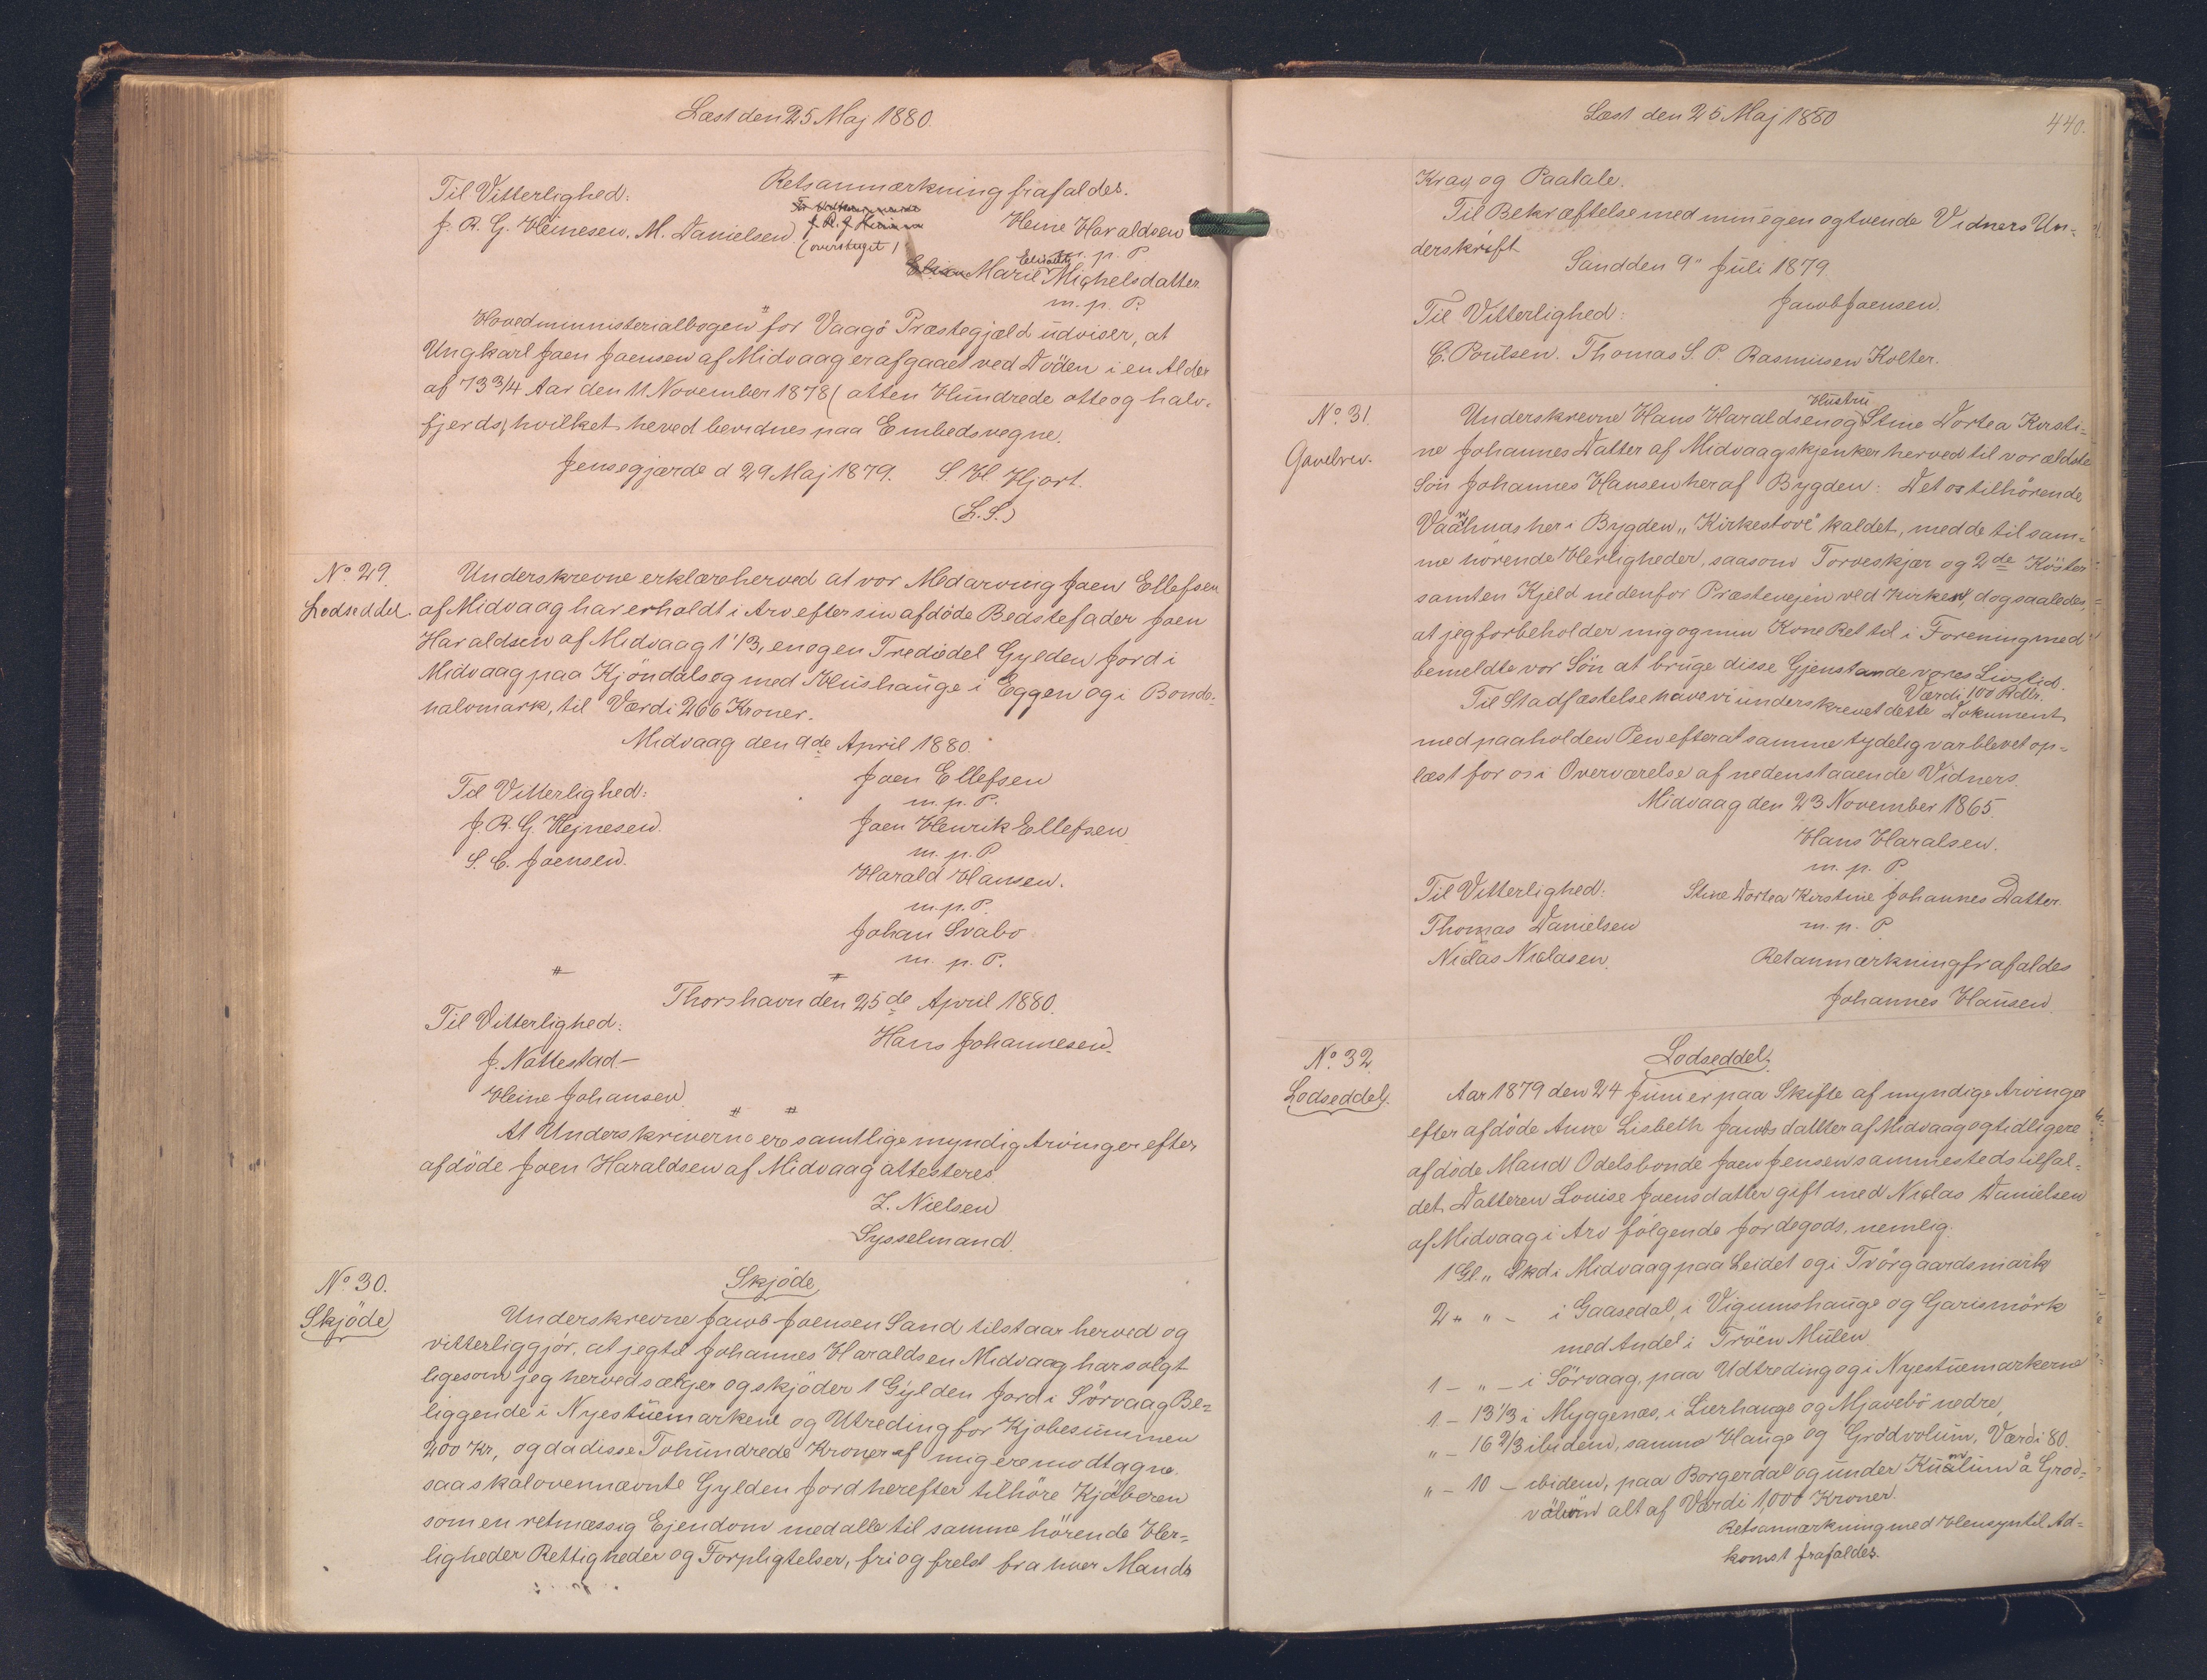 Læst den 25 Maj 1880.
Retsanmærkning frafaldes.
Til Vitterlighed:
J. R. G. Heinesen. M. Danielsen
(overstreget)
Heine Haraldsen
m. p. P.
Marie Elisabeth Michelsdatter
m. p. P.
"Hovedministerialbogen" for Vaagö Præstegjæld udviser, at
Ungkarl Joen Joensen af Midvaag er afgaaet ved Döden i en Alder
af 73 3/4 Aar den 11 November 1878 (atten Hundrede otte og halv-
fjerds, hvilket herved bevidnes paa Embedsvegne.
Jensegjærde d 29 Maj 1879. S. H. Hjort.
(L.S.)
No. 29.
Lodseddel.
Underskrevne erklære herved at vor Medarving Joen Ellefsen
af Midvaag har erholdt i Arv efter sin afdöde Bedstefader Joen
Haraldsen af Midvaag 1 1/3, en og en Trediedel Gylden Jord i
Midvaag paa Kjöndals og med Hushauge i Eggen og i Bonde-
halvmark, til Værdi 266 Kroner.
Midvaag den 9de April 1880.
Til Vitterlighed:
J. R. G. Hejnesen.
S. C. Joensen.
Joen Ellefsen
m. p. P.
Joen Henrik Ellefsen
m. p. P
Harald Hansen.
m. p. P.
Johan Svabo
m. p. P.
Thorshavn den 25de April 1880.
Til Vitterlighed:
J. Nattestad
Heine Johansen
Hans Johannesen.
At Underskriverne ere samtlige myndig Arvinger efter
afdöde Joen Haraldsen af Midvaag attesteres
Z. Nielsen
Sysselmand
No. 30.
Skjöde
Skjöde
Underskrevne Jacob Joensen Sand tilstaar herved og
vitterliggjör, at jeg til Johannes Haraldsen Midvaag har solgt
ligesom jeg herved sælger og skjöder 1 Gylden Jord i Sörvaag Be-
liggende i Nyestuemarkene og Utreding for Kjöbesummen
200 Kr, og da disse Tohundrede Kroner af mig ere modtagne.
saa skal ovennævnte Gylden Jord herefter tilhöre Kjöberen
som en retmæssig Ejendom med alle til samme hörende Her-
ligheder Rettigheder og Forpligtelser, fri og frelst fra hver Mands
Læst den 25 Maj 1880
440.
Krav og Paatale.
Til Bekræftelse med min egen og tvende Vidners Un-
derskrift
Sand den 9" Juli 1879.
Til Vitterlighed:
Jacob Joensen.
C. Poulsen. Thomas S. P. Rasmusen Kolter.
No. 31.
Gavebrev.
Underskrevne Hans Haraldsen og Hustru Stine Dortea Kirsti-
ne Johannes Datter af Midvaag skjenker herved til vor ældste
Sön Johannes Hansen her af Bygden: Det os tilhörende
Vaanhuus her i Bygden "Kirkestove" kaldet, med de til sam-
me hörende Herligheder, saasom Torveskjær og 2de Köster
samt en Kjeld nedenfor Præstevejen ved Kirken, dog saaledes,
at jeg forbeholder mig og min Kone Ret til i Forening med
bemeldte vor Sön at bruge disse Gjenstande vores Livstid.
Værdi 100 Rdlr.
Til Stadfæstelse have vi underskrevet dette Dokument
med paaholden Pen efterat samme tydelig var blevet op-
læst for os i Overværelse af nedenstaaende Vidners.
Midvaag den 23 November 1865.
Hans Haralsen.
m. p. P
Til Vitterlighed:
Stine Dortea Kirstine Johannes Datter.
m. p. P
Thomas Danielsen
Niclas Niclasen.
Retanmærkning frafaldes
Johannes Hansen
No. 32.
Lodseddel.
Lodseddel.
Aar 1879 den 24 Juni er paa Skifte af myndige Arvinger
efter afdöde Anne Lisbeth Jacobsdatter af Midvaag og tidligere
afdöde Mand Odelsbonde Joen Jensen sammesteds tilfal-
det Datteren Louise Joensdatter gift med Niclas Danielsen
af Midvaag i Arv fölgende Jordegods, nemlig.
1 Gl. " Skd i Midvaag paa Leidet og i Tvörgaardsmark
2 - " - i Gaasedal, i Vigumshauge og Garismörk
med Andel i Tröen Mülen
1 - " - i Sörvaag, paa Udtreding og i Nyestuemarkerne
1 - 13 1/3 i Myggenæs, i Lierhauge og Mjavebö nedre,
" - 16 2/3 ibidem, samme Hauge og Grödvolum, Værdi 80.
" - 10 - ibidem, paa Borgerdal og under å Grod-
alt af Værdi 1000 Kroner.
Retsanmærkning med Hensyn til Ad-
komst frafaldes.